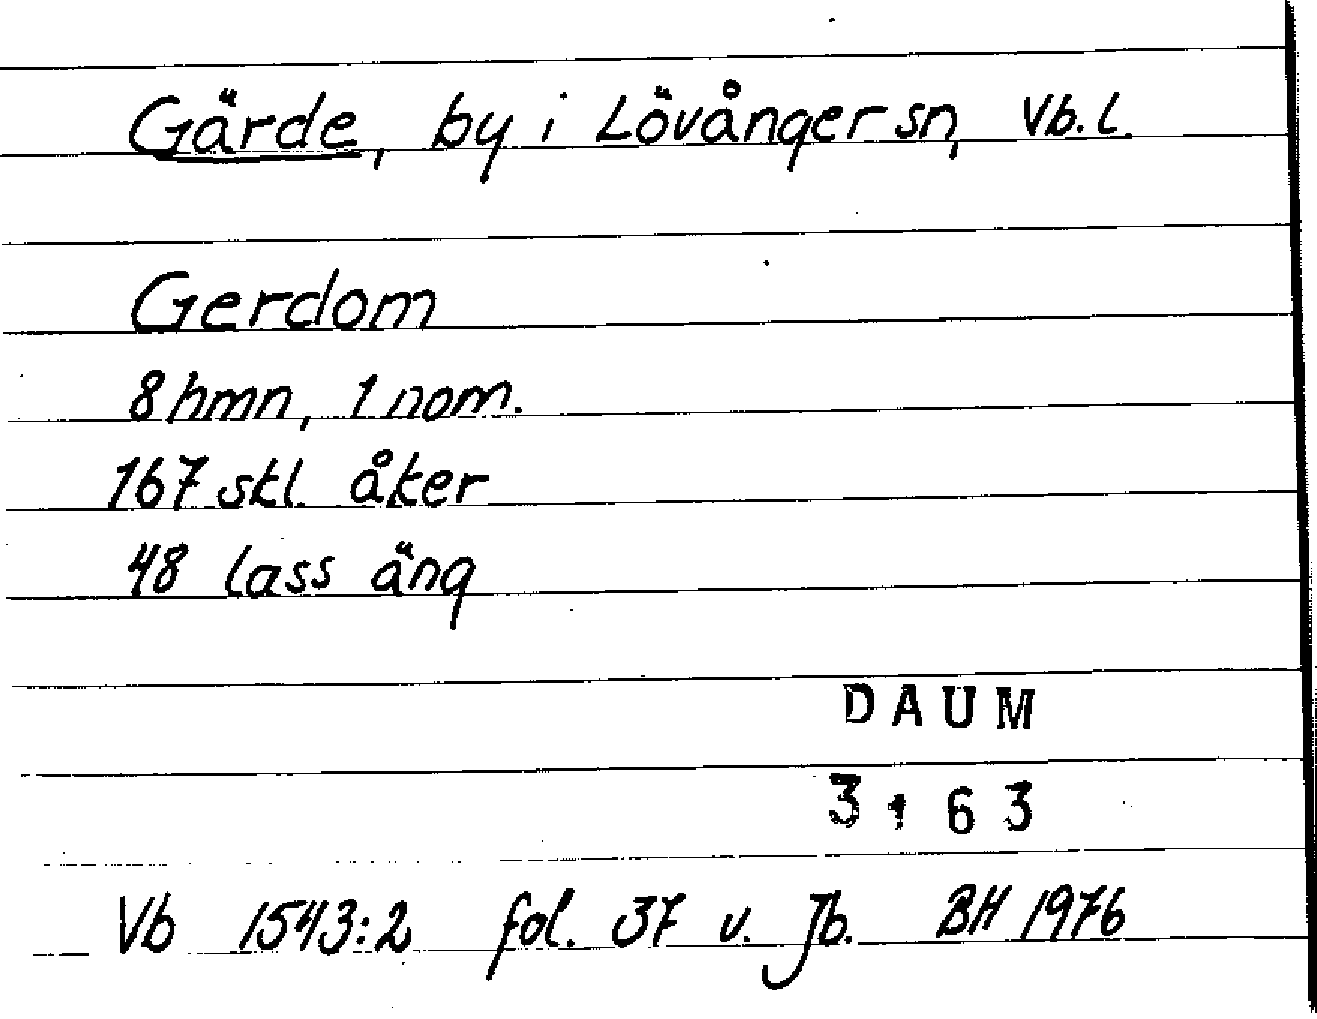 Gärde, by i Lövånger sn, Vb. l.
Gerdom
8 hmn, 1 nom.
167 skl. åker
48 lass äng
DAUM
3163
Vb 1543:2 fol. 37 v. Jb. BH 1976